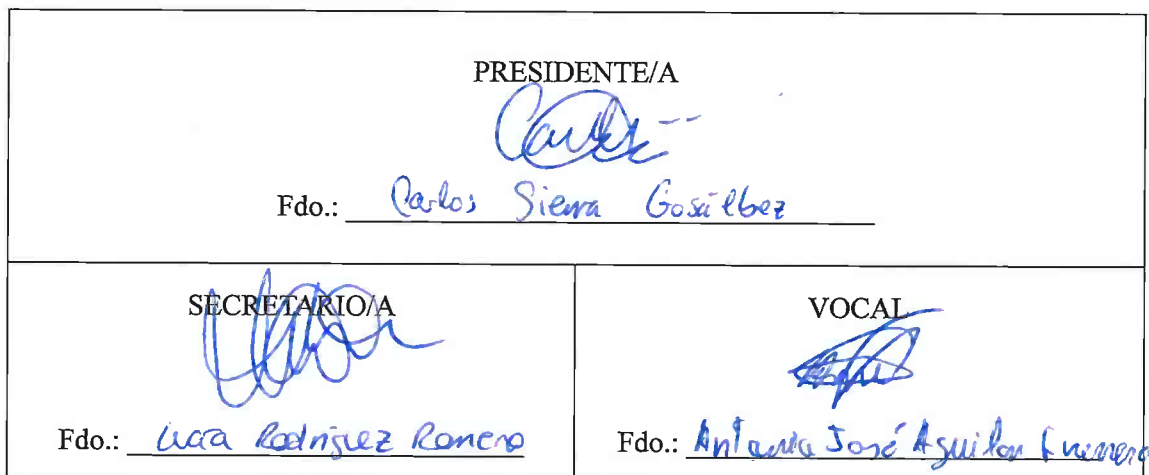 PRESIDENTE/A
Fdo.: Carlos Sierra Gosálbez
SECRETARIO/A
Fdo.: Lucía Rodríguez Romero
VOCAL
Fdo.: José Aguilar